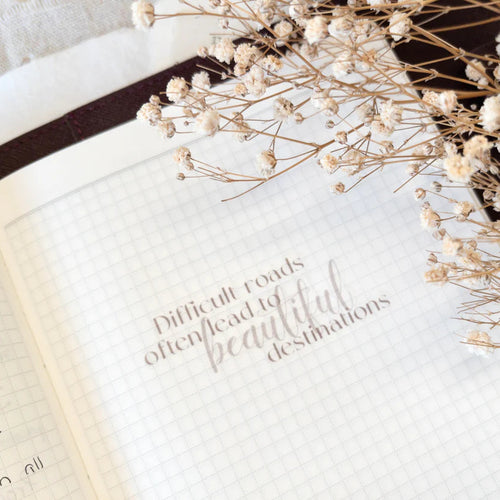 Difficult roads
often lead to
beautiful
destinations
all